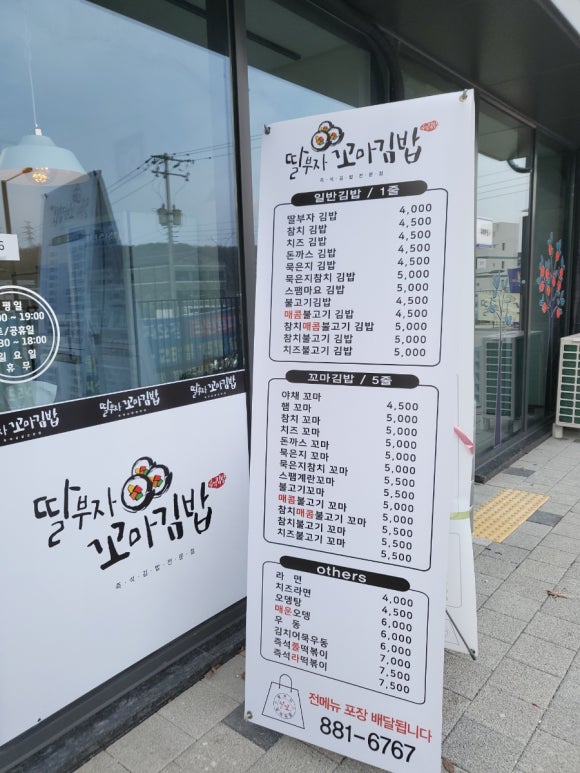 딸부자 꼬마김밥
즉·석·김·밥·전·문·점
일반김밥 / 1줄
딸부자 김밥 4,000
참치 김밥 4,500
치즈 김밥 4,500
돈까스 김밥 4,500
묵은지 김밥 4,500
묵은지참치 김밥 5,000
스팸마요 김밥 5,000
불고기김밥 4,500
매콤불고기 김밥 4,500
참치매콤불고기 김밥 5,000
참치불고기 김밥 5,000
치즈불고기 김밥 5,000
꼬마김밥 / 5줄
야채 꼬마 4,500
햄 꼬마 5,000
참치 꼬마 5,000
치즈 꼬마 5,000
돈까스 꼬마 5,000
묵은지 꼬마 5,000
묵은지참치 꼬마 5,500
스팸계란 꼬마 5,500
불고기꼬마 5,000
매콤불고기 꼬마 5,000
참치매콤불고기 꼬마 5,500
참치불고기 꼬마 5,500
치즈불고기 꼬마 5,500
others
라 면 4,000
치즈라면 4,500
오뎅탕 6,000
매운오뎅 6,000
우 동 6,000
김치어묵우동 7,000
즉석쫄떡볶이 7,500
즉석라떡볶이 7,500
전메뉴 포장 배달됩니다
881-6767
평 일
00 ~ 19:00
/공휴일
30 ~ 18:00
일 요 일
휴 무
꼬마김밥 딸부자 꼬마김밥 딸부자 꼬마김밥
딸부자 꼬마김밥
즉·석·김·밥·전·문·점